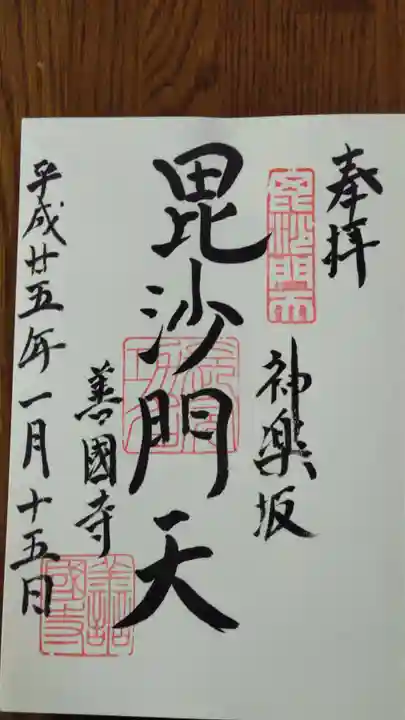 奉拝
毘沙門天
神楽坂
毘沙門天
善國寺
平成廿五年一月十五日